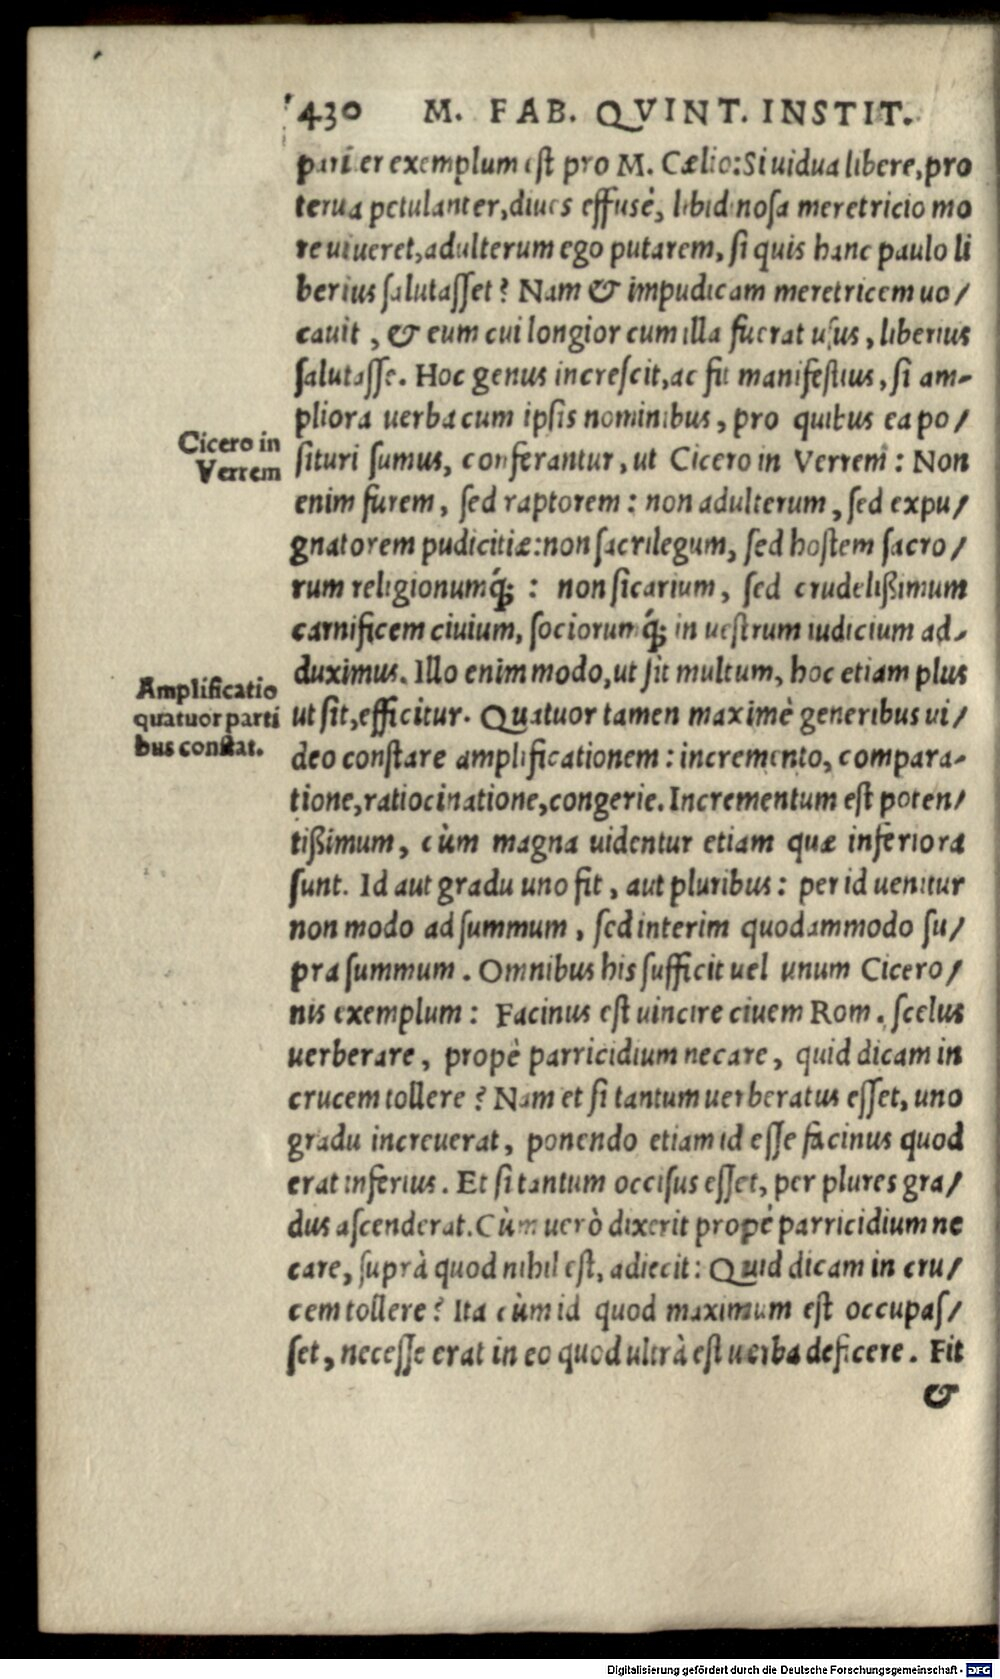 430 M. FAB. QVINT. INSTIT.
pariter exemplum est pro M. Cælio: Si uidua libere, pro
terua petulanter, diues effusè, libidinosa meretricio mo
re uiueret, adulterum ego putarem, si quis hanc paulo li
berius salutasset? Nam & impudicam meretricem uo/
cauit, & eum cui longior cum illa fuerat usus, liberius
salutasse. Hoc genus increscit, ac fit manifestius, si am-
pliora uerba cum ipsis nominibus, pro quibus ea po/
Cicero in
Verrem
situri sumus, conferantur, ut Cicero in Verrem: Non
enim furem, sed raptorem: non adulterum, sed expu/
gnatorem pudicitiæ: non sacrilegum, sed hostem sacro/
rum religionumq́;: non sicarium, sed crudelißimum
carnificem ciuium, sociorumq́; in uestrum iudicium ad-
duximus. Illo enim modo, ut sit multum, hoc etiam plus
Amplificatio
quatuor parti
bus constat.
ut sit, efficitur. Quatuor tamen maximè generibus ui/
deo constare amplificationem: incremento, compara-
tione, ratiocinatione, congerie. Incrementum est poten/
tißimum, cùm magna uidentur etiam quæ inferiora
sunt. Id aut gradu uno fit, aut pluribus: per id uenitur
non modo ad summum, sed interim quodammodo su/
pra summum. Omnibus his sufficit uel unum Cicero/
nis exemplum: Facinus est uincire ciuem Rom. scelus
uerberare, propè parricidium necare, quid dicam in
crucem tollere? Nam et si tantum uerberatus esset, uno
gradu increuerat, ponendo etiam id esse facinus quod
erat inferius. Et si tantum occisus esset, per plures gra/
dus ascenderat. Cùm uerò dixerit propè parricidium ne
care, suprà quod nihil est, adiecit: Quid dicam in cru/
cem tollere? Ita cùm id quod maximum est occupas/
set, necesse erat in eo quod ultrà est uerba deficere. Fit
&
Digitalisierung gefördert durch die Deutsche Forschungsgemeinschaft - DFG